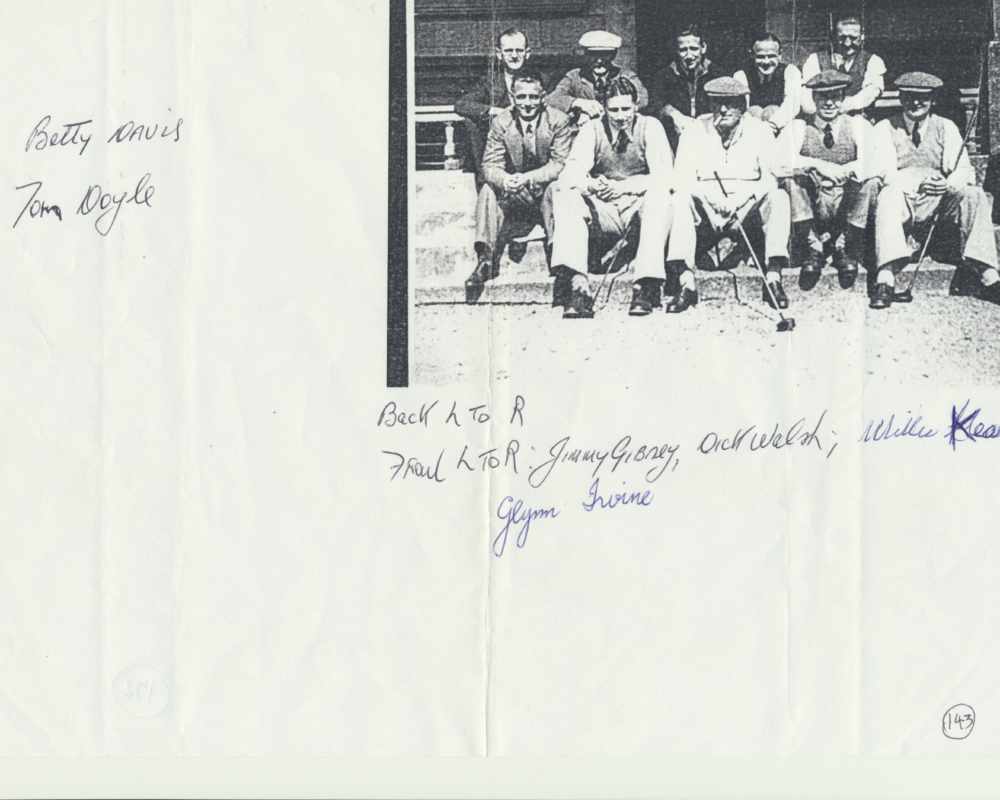 Betty DAVIS
Tom Doyle
Back L To R
Front L To R: Jimmy Gibney, Dick Walsh, Willie
Glynn Irvine
143